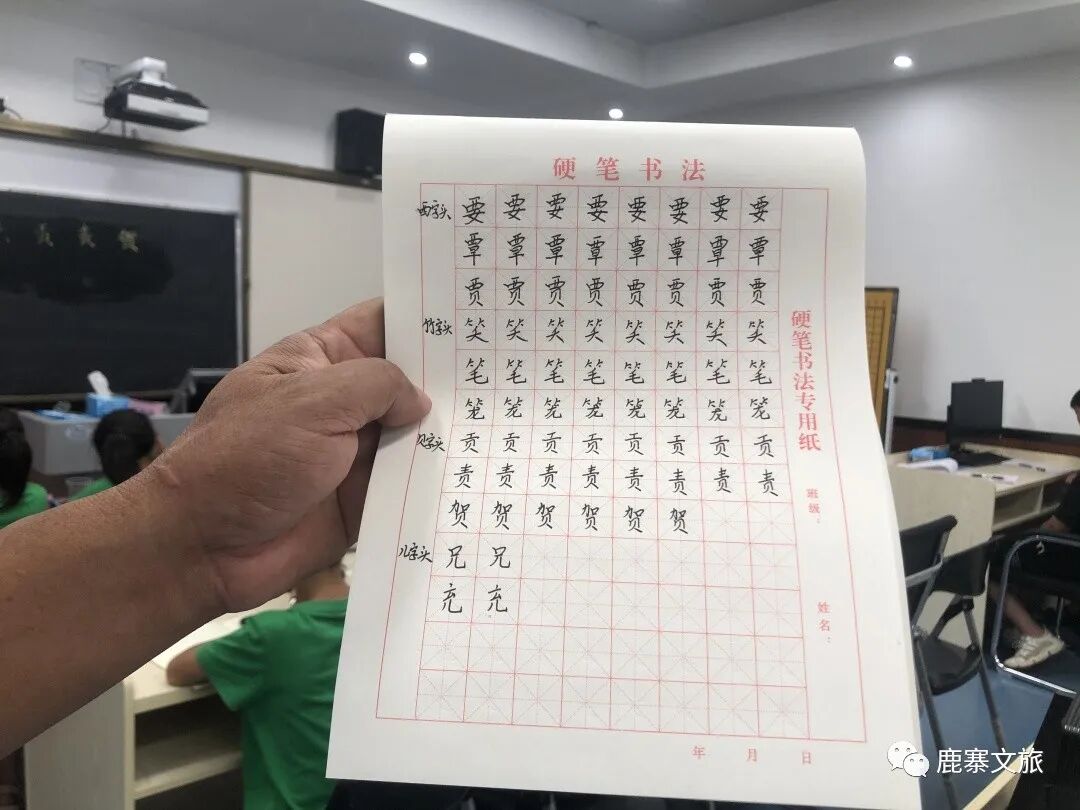 硬笔书法
西字头 要 要 要 要 要 要 要 要
覃 覃 覃 覃 覃 覃 覃 覃
贾 贾 贾 贾 贾 贾 贾 贾
竹字头 笑 笑 笑 笑 笑 笑 笑 笑
笔 笔 笔 笔 笔 笔 笔 笔
笼 笼 笼 笼 笼 笼 笼 笼
贝字头 贡 贡 贡 贡 贡 贡 贡 贡
责 责 责 责 责 责 责 责
贺 贺 贺 贺 贺 贺
儿字头 兄 兄
充 充
硬笔书法专用纸
班级：
姓名：
年 月 日
鹿寨文旅